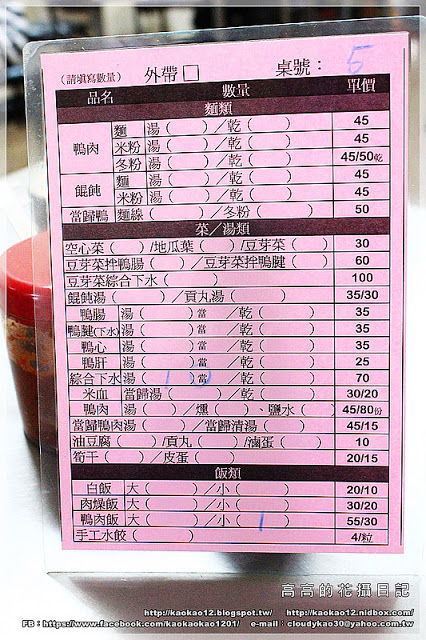 (請填寫數量) 外帶□ 桌號： 5
品名 數量 單價
麵類
鴨肉 麵 湯( )／乾( ) 45
米粉 湯( )／乾( ) 45
冬粉 湯( )／乾( ) 45/50乾
餛飩 麵 湯( )／乾( ) 45
米粉 湯( )／乾( ) 45
當歸鴨 麵線( )／冬粉( ) 50
菜／湯類
空心菜( )/地瓜葉( )/豆芽菜( ) 30
豆芽菜拌鴨腸( )／豆芽菜拌鴨腱( ) 60
豆芽菜綜合下水( ) 100
餛飩湯( )／貢丸湯( ) 35/30
鴨腸 湯( )當／乾( ) 35
鴨腱(下水) 湯( )當／乾( ) 35
鴨心 湯( )當／乾( ) 35
鴨肝 湯( )當／乾( ) 25
綜合下水 湯( )當／乾( ) 70
米血 當歸湯( )／乾( ) 30/20
鴨肉 湯( )／燻( )、鹽水( ) 45/80份
當歸鴨肉湯( )／當歸清湯( ) 45/15
油豆腐( )/貢丸( )/滷蛋( ) 10
筍干( )／皮蛋( ) 20/15
飯類
白飯 大( )／小( ) 20/10
肉燥飯 大( )／小( ) 30/20
鴨肉飯 大( )／小( 1 ) 55/30
手工水餃( ) 4/粒
高高的花攝日記
http://kaokao12.blogspot.tw/ http://kaokao12.nidbox.com/
FB：https://www.facebook.com/kaokaokao1201/ e-mail：cloudykao30@yahoo.com.tw